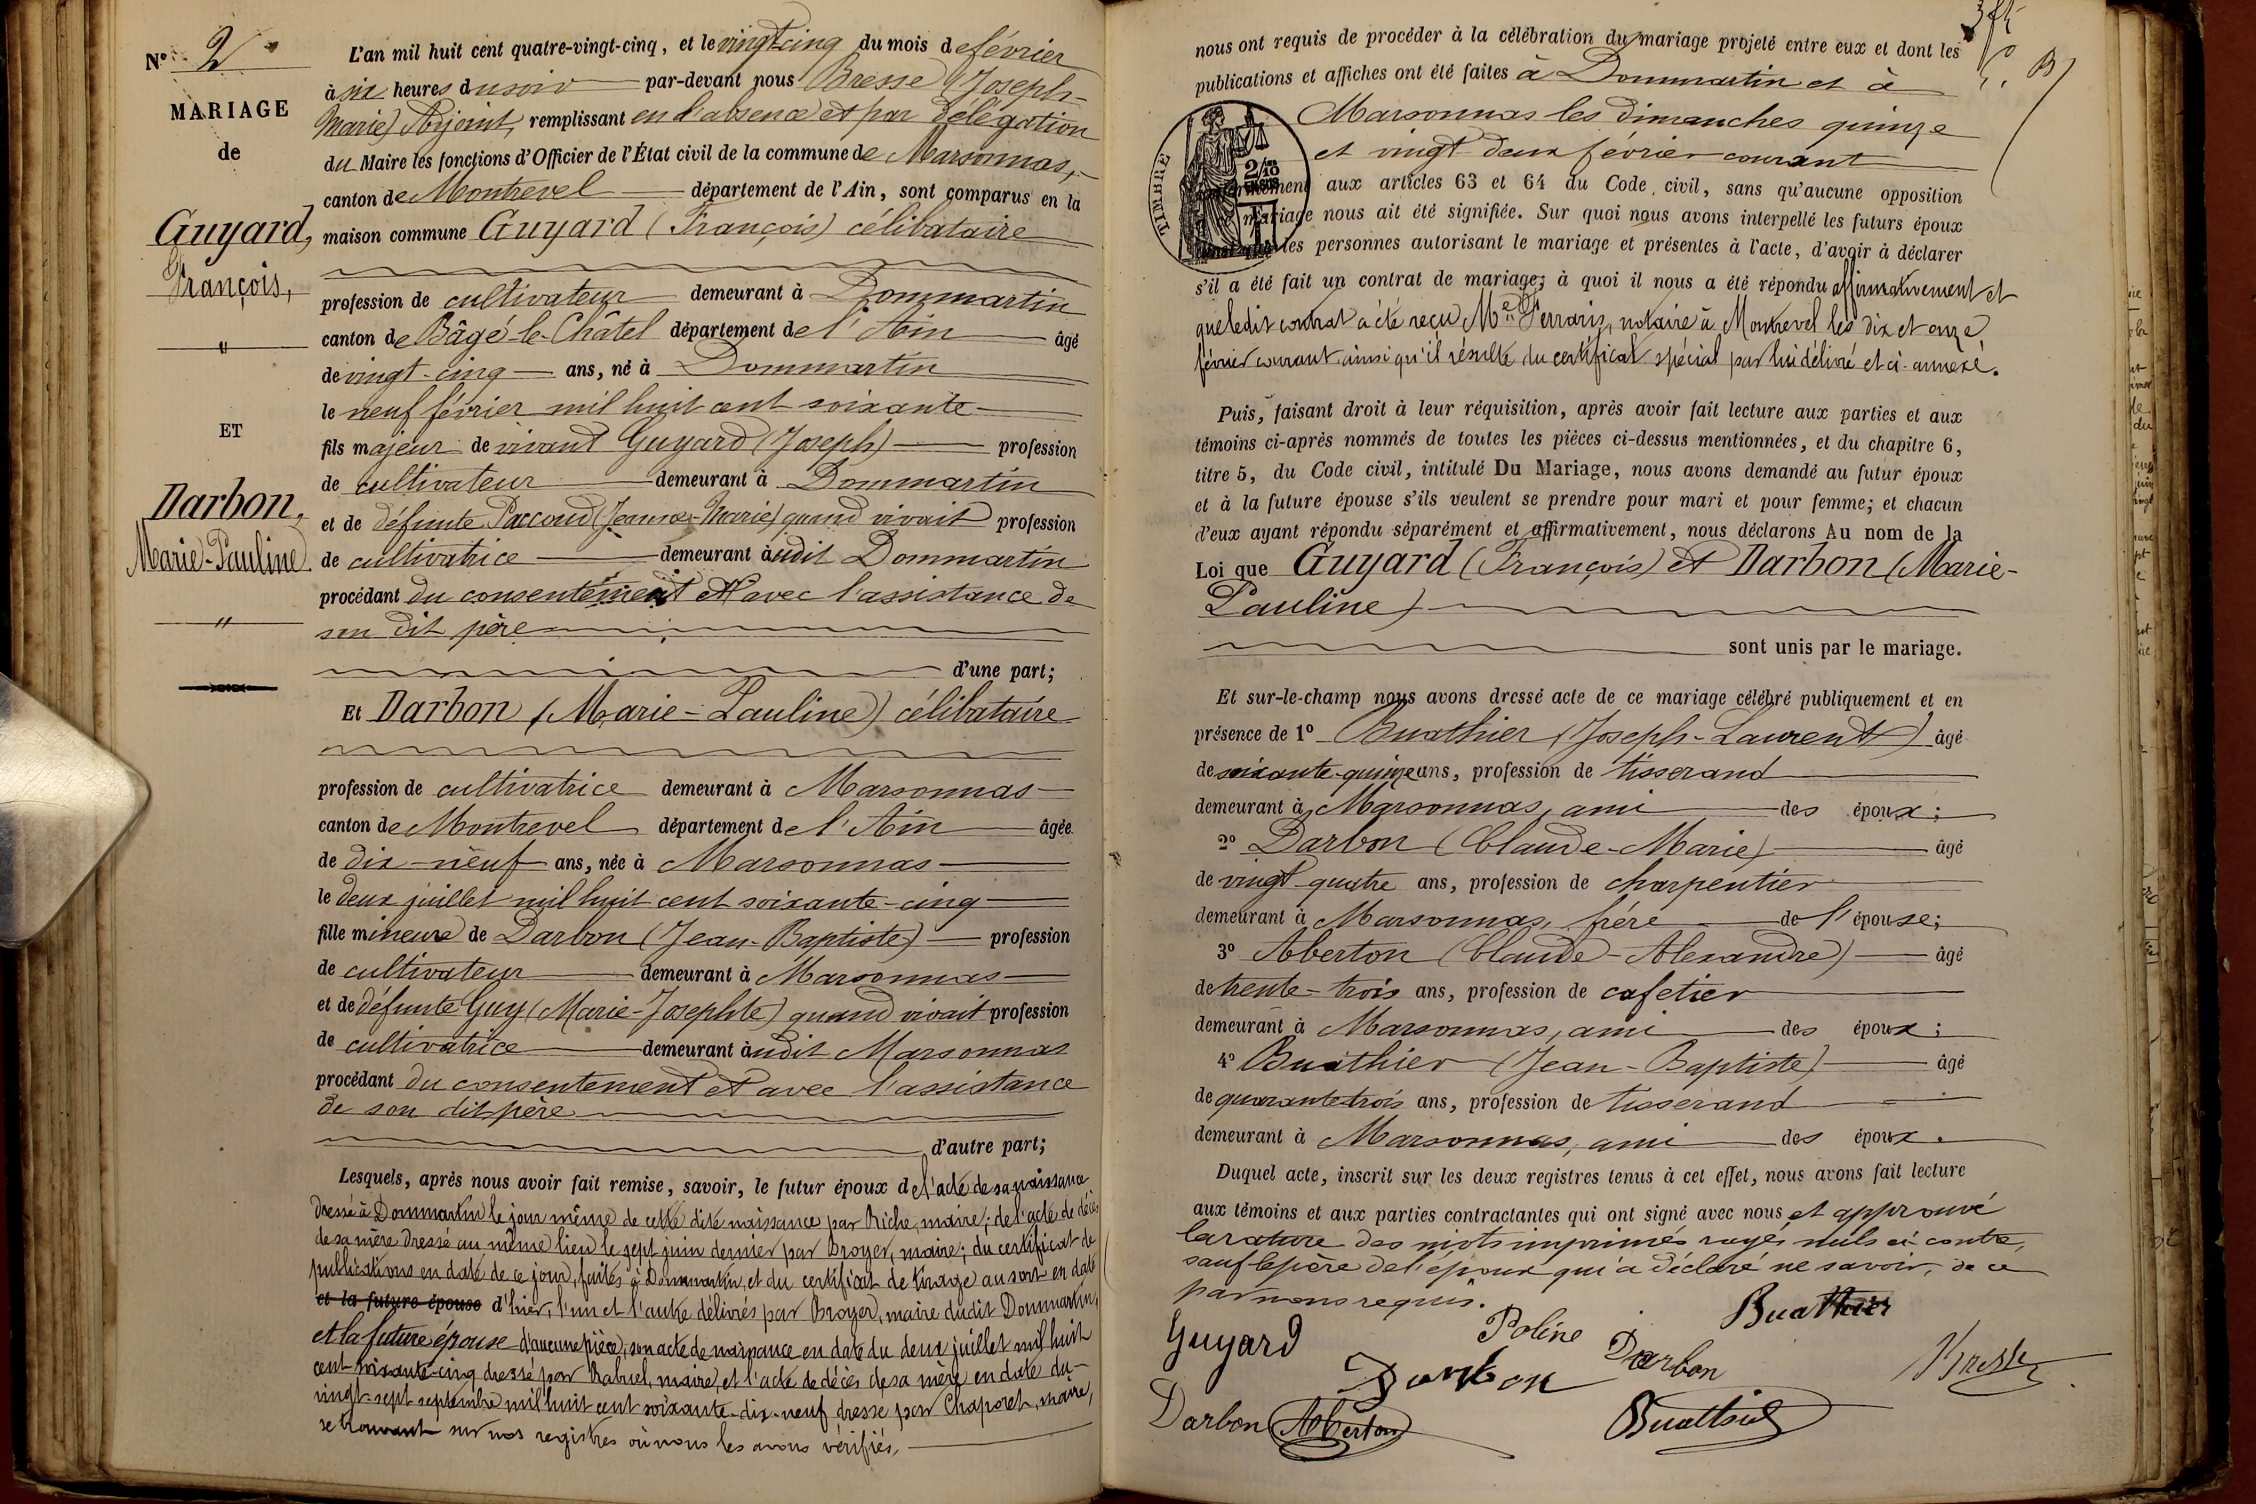 N° 2
MARIAGE
de
Guyard,
François,
"
ET
Darbon,
Marie-Pauline
"
L'an mil huit cent quatre-vingt-cinq, et le vingt cinq du mois de février
à six heures du soir par-devant nous Bresse (Joseph-
Marie) Adjoint, remplissant en l'absence et par délégation
du Maire les fonctions d'Officier de l'État civil de la commune de Marsonnas,
canton de Montrevel département de l'Ain, sont comparus en la
maison commune Guyard (François) célibataire
profession de cultivateur demeurant à Dommartin
canton de Bâgé-le-Châtel département de l'Ain âgé
de vingt-cinq ans, né à Dommartin
le neuf février mil huit cent soixante
fils majeur de vivant Guyard (Joseph) profession
de cultivateur demeurant à Dommartin
et de défunte Paccoud (Jeanne-Marie) quand vivait profession
de cultivatrice demeurant àudit Dommartin
procédant du consentement et avec l'assistance de
son dit père
d'une part;
Et Darbon (Marie-Pauline) célibataire
profession de cultivatrice demeurant à Marsonnas
canton de Montrevel département de l'Ain âgée
de dix-neuf ans, née à Marsonnas
le deux juillet mil huit cent soixante-cinq
fille mineure de Darbon (Jean-Baptiste) profession
de cultivateur demeurant à Marsonnas
et de défunte Guy (Marie-Josephte) quand vivait profession
de cultivatrice demeurant àudit Marsonnas
procédant du consentement et avec l'assistance
de son dit père
d'autre part;
Lesquels, après nous avoir fait remise, savoir, le futur époux de l'acte de sa naissance
dressé à Dommartin le jour même de cette dite naissance par Riche, maire; de l'acte de décès
de sa mère dressé au même lieu le sept juin dernier par Broyer, maire; du certificat de
publications en date de ce jour, faites à Dommartin, et du certificat de tirage au sort en date
et la future épouse d'hier, l'un et l'autre délivrés par Broyer, maire dudit Dommartin,
et la future épouse d'aucune pièce, son acte de naissance en date du deux juillet mil huit
cent soixante-cinq dressé par Rabuel, maire, et l'acte de décès de sa mère en date du
vingt-sept septembre mil huit cent soixante-dix-neuf dressé par Chaporet, maire,
se trouvant sur nos registres où nous les avons vérifiés,
nous ont requis de procéder à la célébration du mariage projeté entre eux et dont les
publications et affiches ont été faites à Dommartin et à
Marsonnas les dimanches quinze
et vingt deux février courant
TIMBRE
2/10
aux articles 63 et 64 du Code civil, sans qu'aucune opposition
mariage nous ait été signifiée. Sur quoi nous avons interpellé les futurs époux
les personnes autorisant le mariage et présentes à l'acte, d'avoir à déclarer
s'il a été fait un contrat de mariage; à quoi il nous a été répondu affirmativement et
que ledit contrat a été reçu Me Perraris, notaire à Montrevel les dix et onze
février courant, ainsi qu'il résulte du certificat spécial par lui délivré et ci-annexé.
Puis, faisant droit à leur réquisition, après avoir fait lecture aux parties et aux
témoins ci-après nommés de toutes les pièces ci-dessus mentionnées, et du chapitre 6,
titre 5, du Code civil, intitulé Du Mariage, nous avons demandé au futur époux
et à la future épouse s'ils veulent se prendre pour mari et pour femme; et chacun
d'eux ayant répondu séparément et affirmativement, nous déclarons Au nom de la
Loi que Guyard (François) et Darbon (Marie-
Pauline)
sont unis par le mariage.
Et sur-le-champ nous avons dressé acte de ce mariage célébré publiquement et en
présence de 1° Buathier (Joseph-Laurent) âgé
de soixante-quinze ans, profession de tisserand
demeurant à Marsonnas, ami des époux;
2° Darbon (Claude-Marie) âgé
de vingt-quatre ans, profession de charpentier
demeurant à Marsonnas, frère de l'épouse;
3° Aberton (Claude-Alexandre) âgé
de trente-trois ans, profession de cafetier
demeurant à Marsonnas, ami des époux;
4° Buathier (Jean-Baptiste) âgé
de quarante-trois ans, profession de tisserand
demeurant à Marsonnas, ami des époux.
Duquel acte, inscrit sur les deux registres tenus à cet effet, nous avons fait lecture
aux témoins et aux parties contractantes qui ont signé avec nous et approuvé
la rature des mots imprimés rayés nuls ci contre,
sauf le père de l'époux qui a déclaré ne savoir, de ce
par nous requis.
Guyard Poline Darbon Buathier
Darbon Bresse
Darbon Aberton Buathier